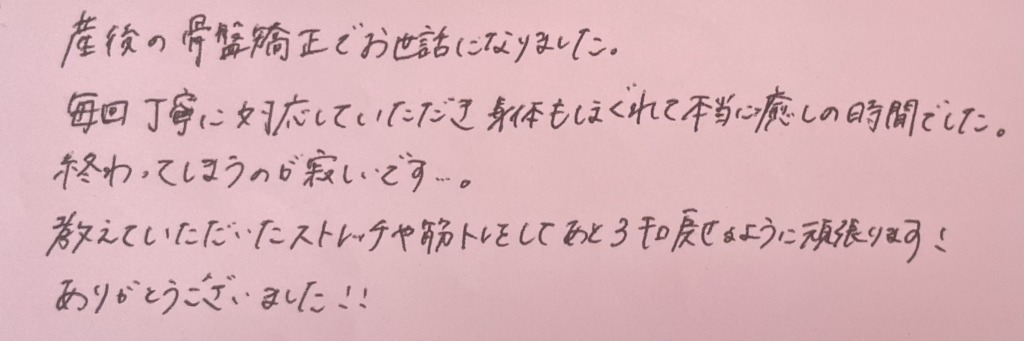 産後の骨盤矯正でお世話になりました。
毎回丁寧に対応していただき身体もほぐれて本当に癒しの時間でした。
終わってしまうのが寂しいです…。
教えていただいたストレッチや筋トレをしてあと3キロ戻せるように頑張ります!
ありがとうございました!!